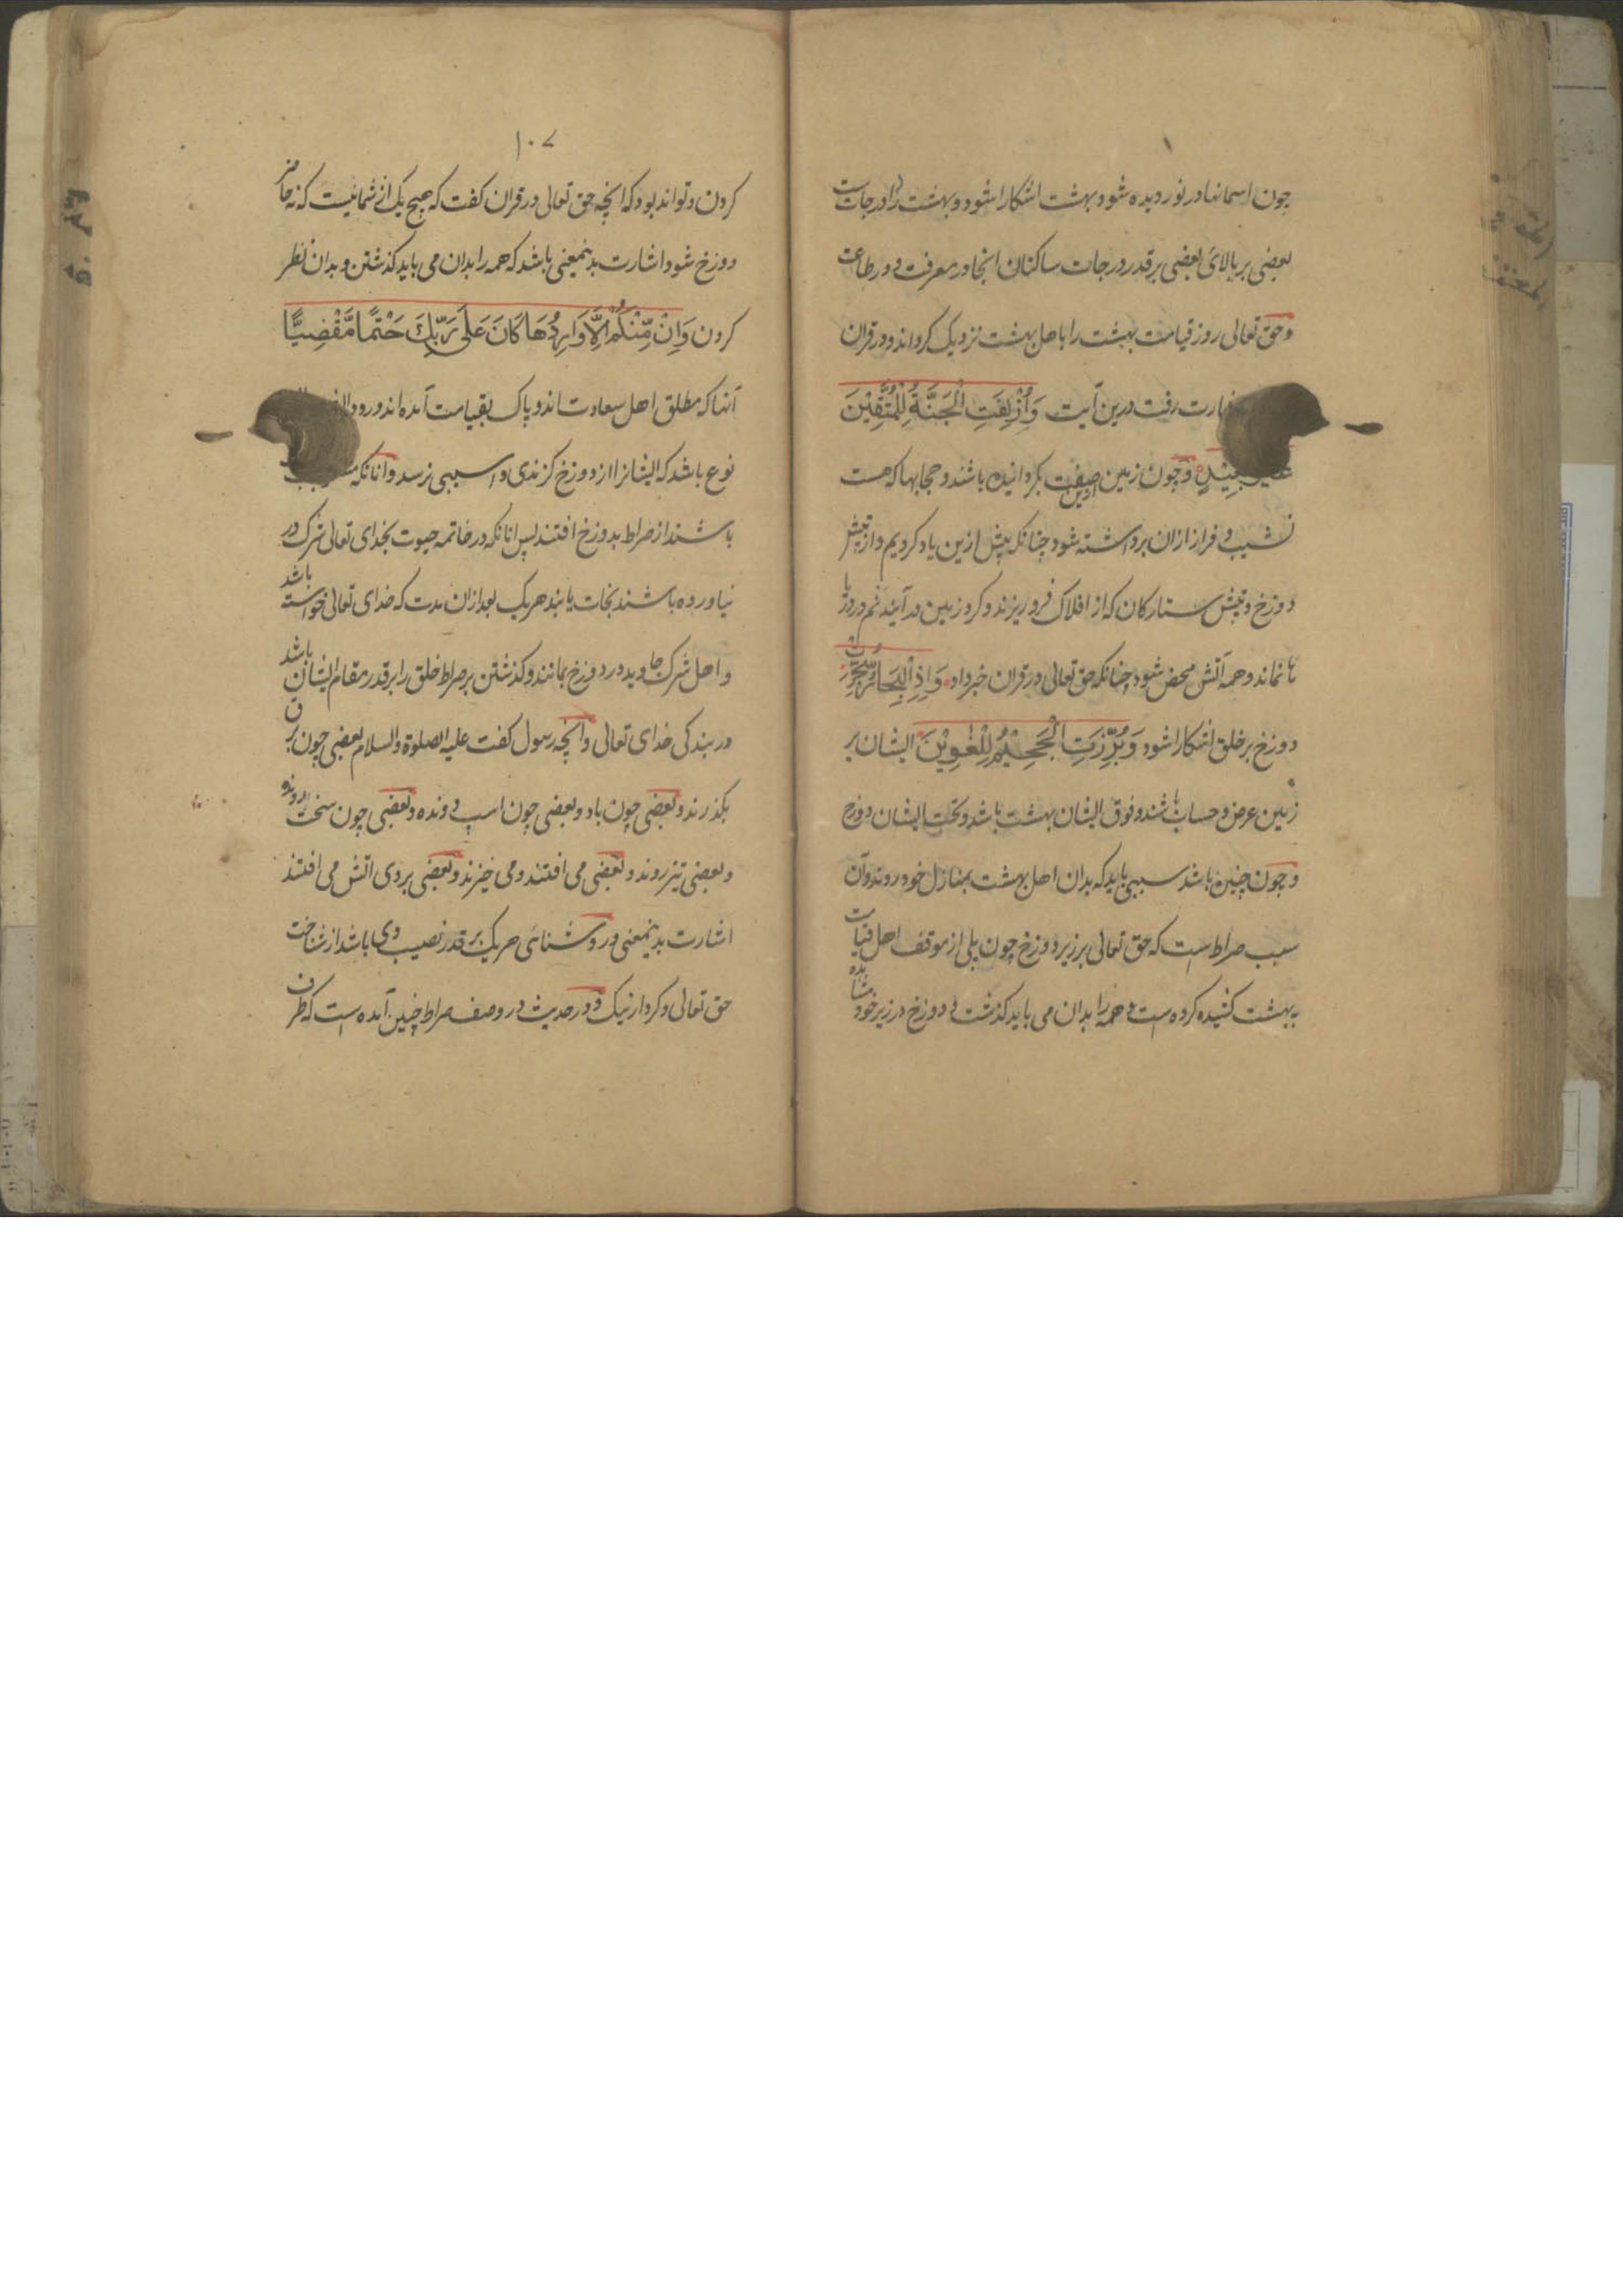 چون اسمانها در نوردیده شود بهشت اشکارا شود و بهشت را درجات است
بعضی بر بالای بعضی بر قدر درجات ساکنان انجا در معرفت و در طاعت
و حق تعالی روز قیامت بهشت را باهل بهشت نزدیک کرداند و در قران
رفت درین آیت وَاُزْلِفَتِ الْجَنَّةُ لِلْمُتَّقِیْنَ
غیر بعید و چون زمین ازین صفت بکردانیده باشند و حجابها که هست
نشیب و فراز ازان برداشته شود چنانکه پیش ازین یاد کردیم و از تپش
دوزخ و تپش ستارکان که از افلاک فرو ریزند و کرد زمین در آیند نم در دریا
ها نماند و همه آتش محض شود چنانکه حق تعالی در قران خبر داد وَاِذَ الْبِحَارُ سُجِّرَتْ
دوزخ بر خلق اشکارا شود وَبُرِّزَتِ الْجَحِیْمُ لِلْغٰوِیْنَ ایشان بر
زمین عرض و حساب باشند و فوق ایشان بهشت باشد و تحت ایشان دوزخ
و چون چنین باشد سببی باید که بدان اهل بهشت بمنازل خود روند و آن
سبب صراط است که حق تعالی بر زبر دوزخ چون پلی از موقف اهل قیامت
به بهشت کشیده کرده است و همه را بدان می باید کذشت و دوزخ در زیر خود مشاهده
۱۰۷
کردن و تواند بود که انچه حق تعالی در قران کفت که هیچ یک از شما نیست که نه حاضر
دوزخ شود اشارت بدینمعنی باشد که همه را بدان می باید کذشتن و بدان نظر
کردن وَاِنْ مِّنْکُمْ اِلَّا وَارِدُهَا کَانَ عَلٰی رَبِّكَ حَتْمًا مَّقْضِیًّا
آنها که مطلق اهل سعادت اند و پاک بقیامت آمده اند ورود
نوع باشد که ایشانرا از دوزخ کزندی و اسیبی نرسد و انانکه
باشند از صراط بدوزخ افتند پس انانکه در خاتمه حیوت بخدای تعالی شرک در
نیاورده باشند نجات یابند هر یک بعد ازان مدت که خدای تعالی خواسته باشد
و اهل شرک جاوید در دوزخ بمانند و کذشتن بر صراط خلق را بر قدر مقام ایشان باشد
در بندکی خدای تعالی و انچه رسول کفت علیه الصلوة والسلام بعضی چون برق
بکذرند و بعضی چون باد و بعضی چون اسپ دونده و بعضی چون سخت رونده
و بعضی تیز روند و بعضی می افتند و می خیزند و بعضی بروی اتش می افتند
اشارت بدینمعنی و روشنائی هر یک بر قدر نصیب وی باشد از شناخت
حق تعالی و کردار نیک و در حدیث در وصف صراط چنین آمده است که طرف